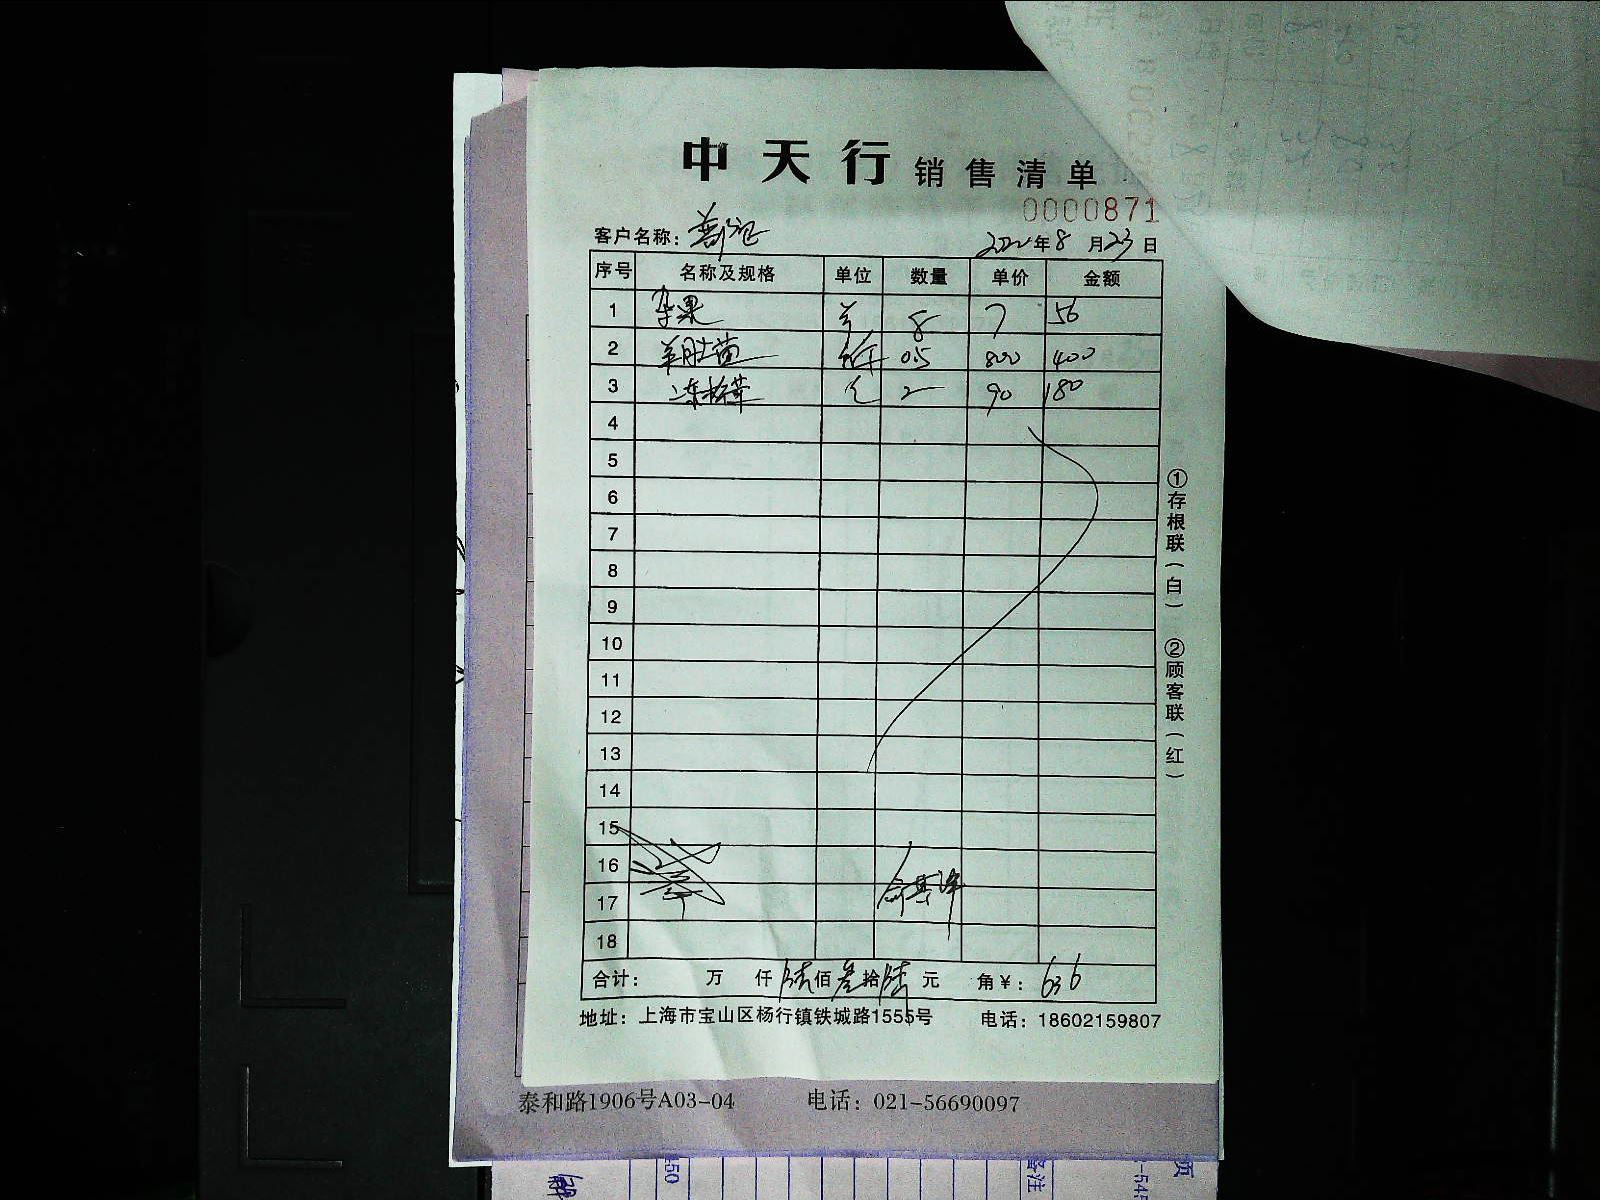 中天行 销售清单
0000871
客户名称：
2022年8月23日
序号 名称及规格 单位 数量 单价 金额
1 杂果 8 7 56
2 羊肚菌 斤 0.5 800 400
3 冻松茸 2 90 180
4
5
6
7
8
9
10
11
12
13
14
15
16
17
18
合计： 万 仟 陆佰叁拾陆元 角￥：636
地址：上海市宝山区杨行镇铁城路1555号 电话：18602159807
①存根联（白） ②顾客联（红）
泰和路1906号A03-04 电话：021-56690097
备注